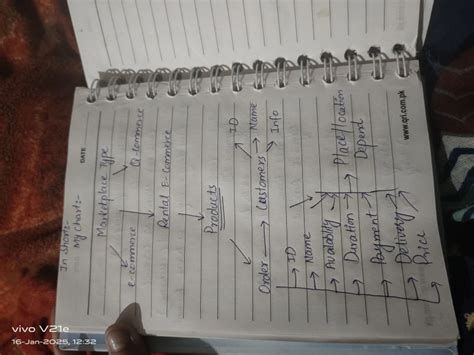 DATE
In short:-
My chart:-
Marketplace Type
e-commerce Q-commerce
Rental E-Commerce
Products
ID
Order → Customers → Name
Info
→ ID
→ Name
→ Availability → Place/location
→ Duration → Depend
→ Payment
→ Delivery
→ Price
www.qri.com.pk
vivo V21e
16-Jan-2025, 12:32